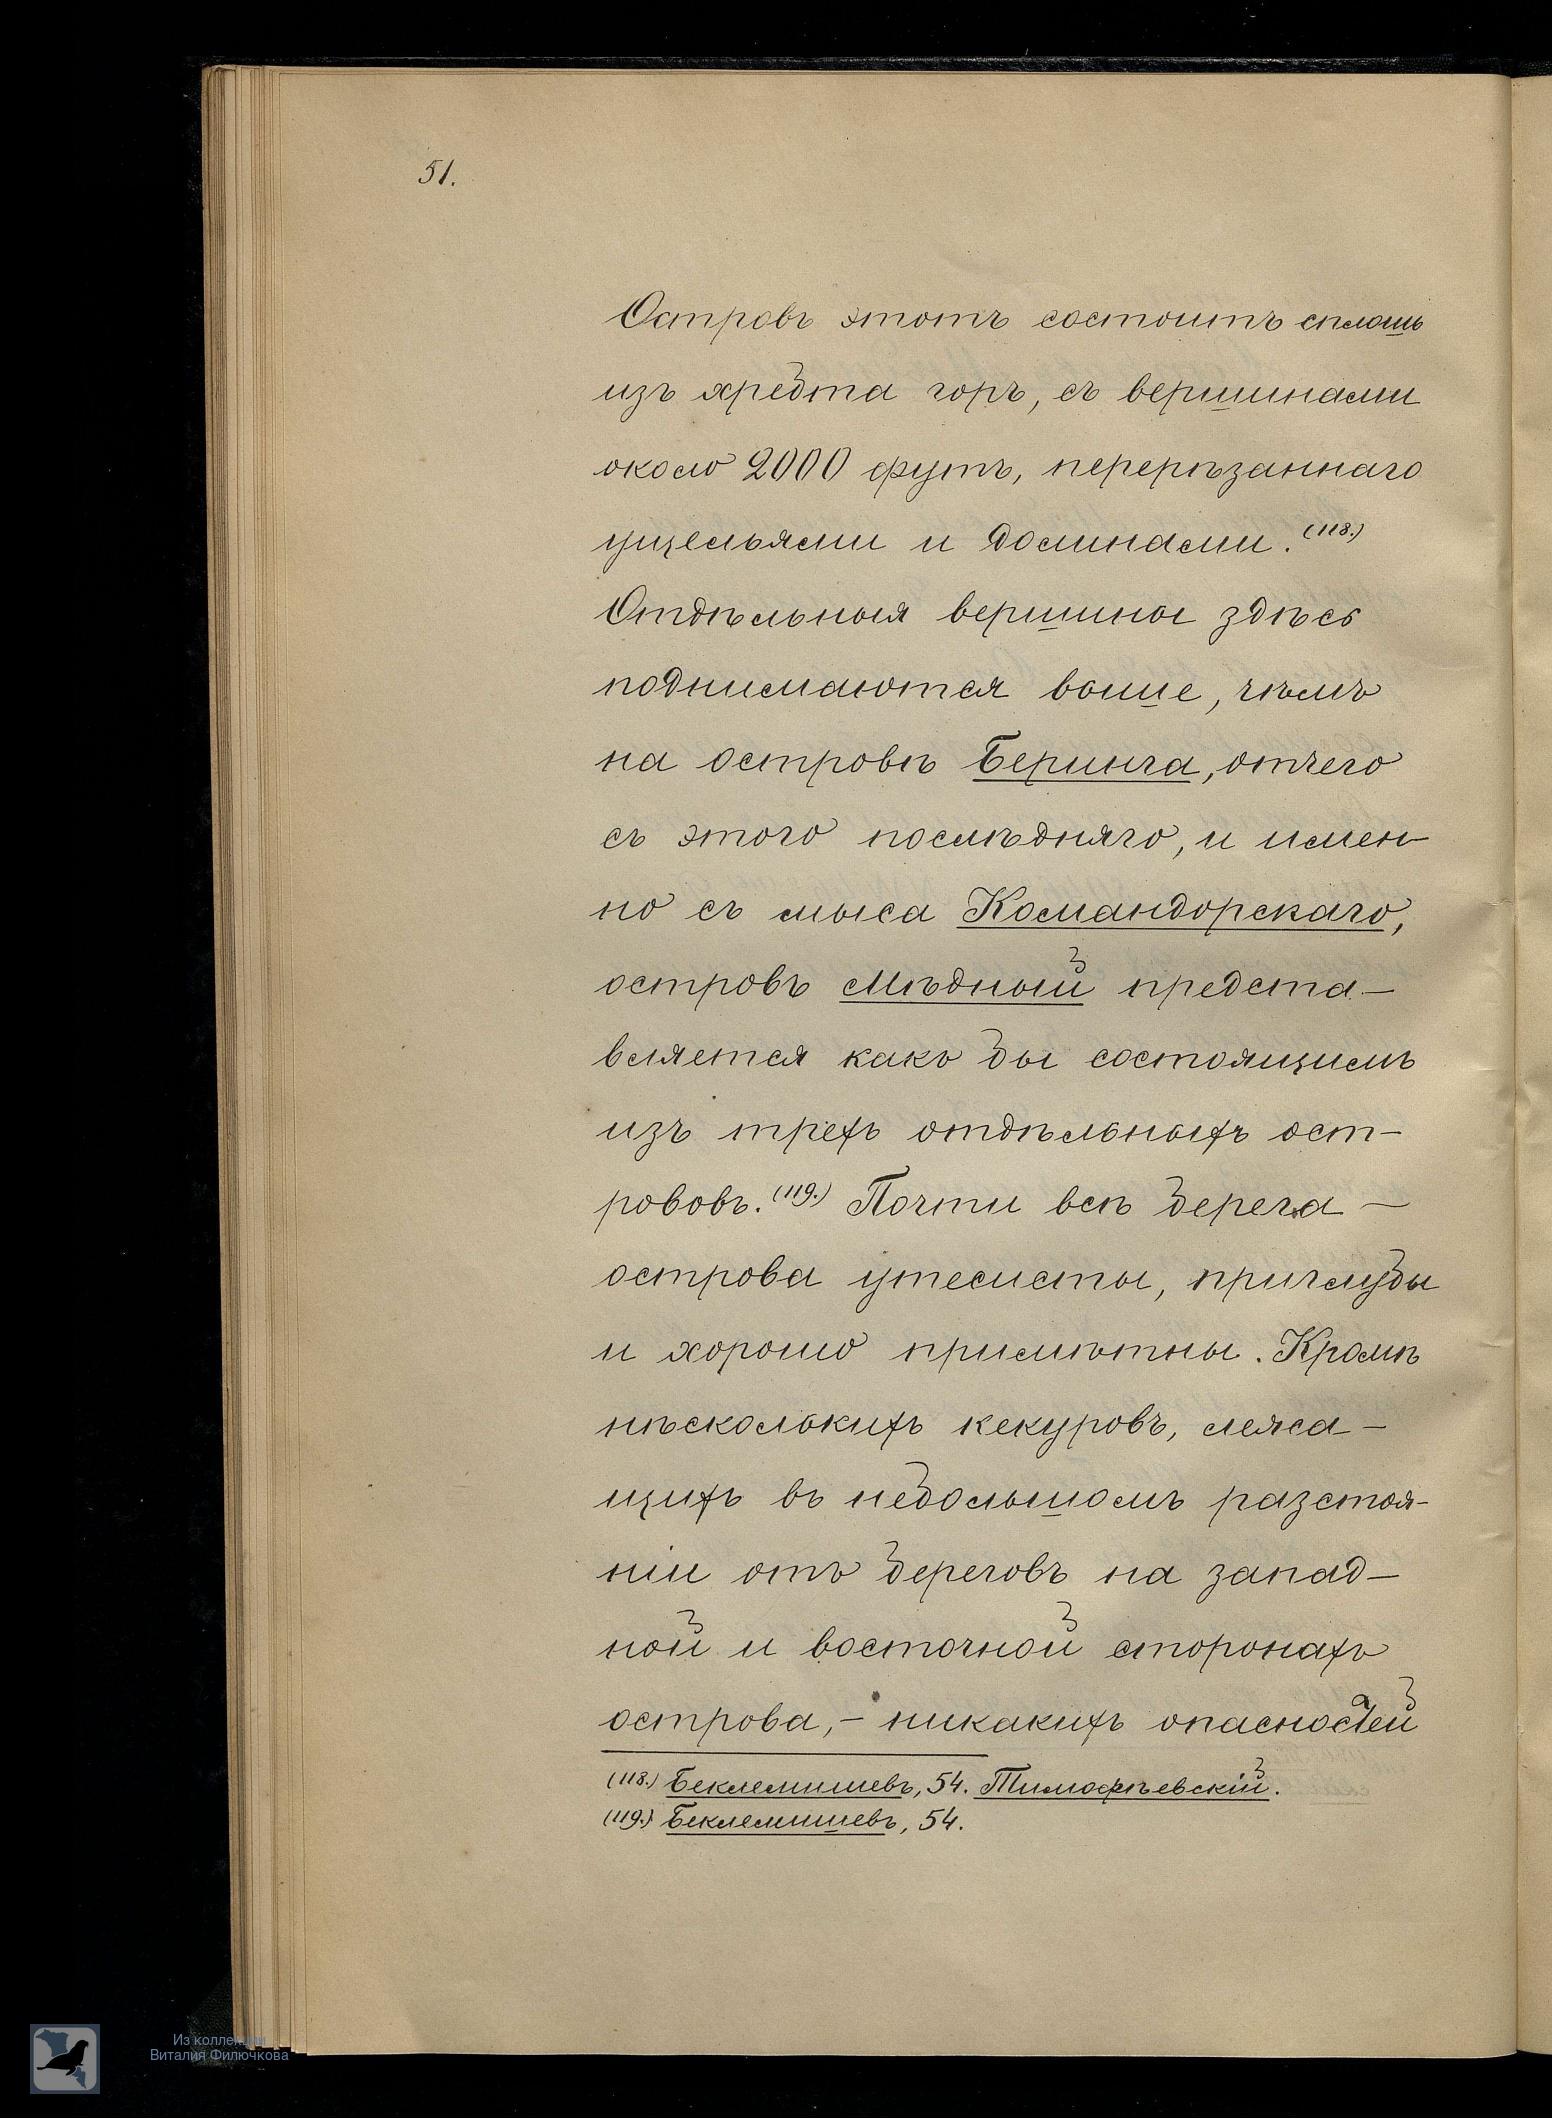 51.
Островъ этотъ состоитъ сплошь
изъ хребта горъ, съ вершинами
около 2000 футъ, перерѣзаннаго
ущельями и долинами. (118.)
Отдѣльныя вершины здѣсь
поднимаются выше, чѣмъ
на островѣ Беринга, отчего
съ этого послѣдняго, и имен-
но съ мыса Командорскаго,
островъ Мѣдный предста-
вляется какъ бы состоящимъ
изъ трехъ отдѣльныхъ ост-
рововъ. (119.) Почти всѣ берега -
острова утесисты, приглубы
и хорошо примѣтны. Кромѣ
нѣсколькихъ кекуровъ, лежа-
щихъ въ небольшомъ разстоя-
ніи отъ береговъ на запад-
ной и восточной сторонахъ
острова, - никакихъ опасностей
(118.) Беклемишевъ, 54. Тимофѣевскій.
(119.) Беклемишевъ, 54.
Из коллекции
Виталия Филючкова